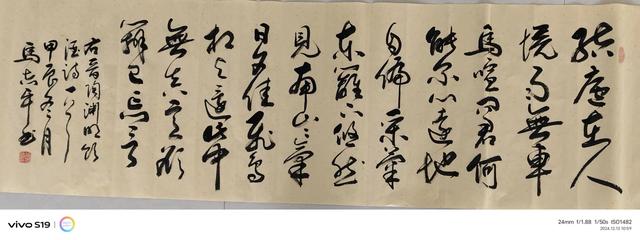 結廬在人
境而無車
馬喧問君何
能尔心遠地
自偏采菊
东籬下悠然
見南山〻氣
日夕佳飛鳥
相与還此中
無真意欲
辯已忘言
右晉陶渊明饮
酒詩
甲辰冬月
馬志军书
vivo S19
24mm f/1.88 1/50s ISO1482
2024.12.13 10:59